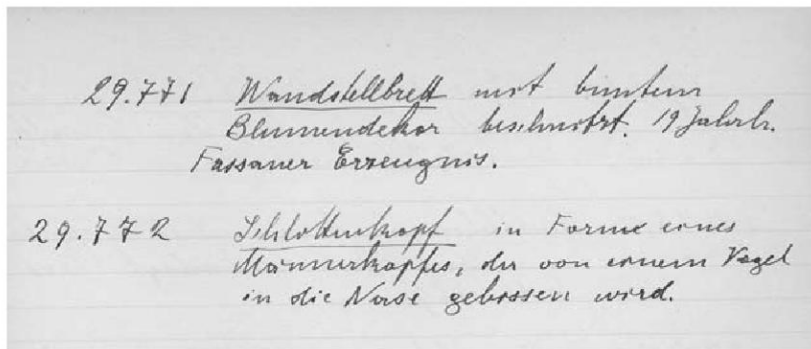 29.771 Wandstellbrett mit buntem
Blumendekor beschnitzt. 19 Jahrh.
Fassaner Erzeugnis.
29.772 Schlottenkopf in Forme eines
Männerkopfes, der von einem Vogel
in die Nase gebissen wird.